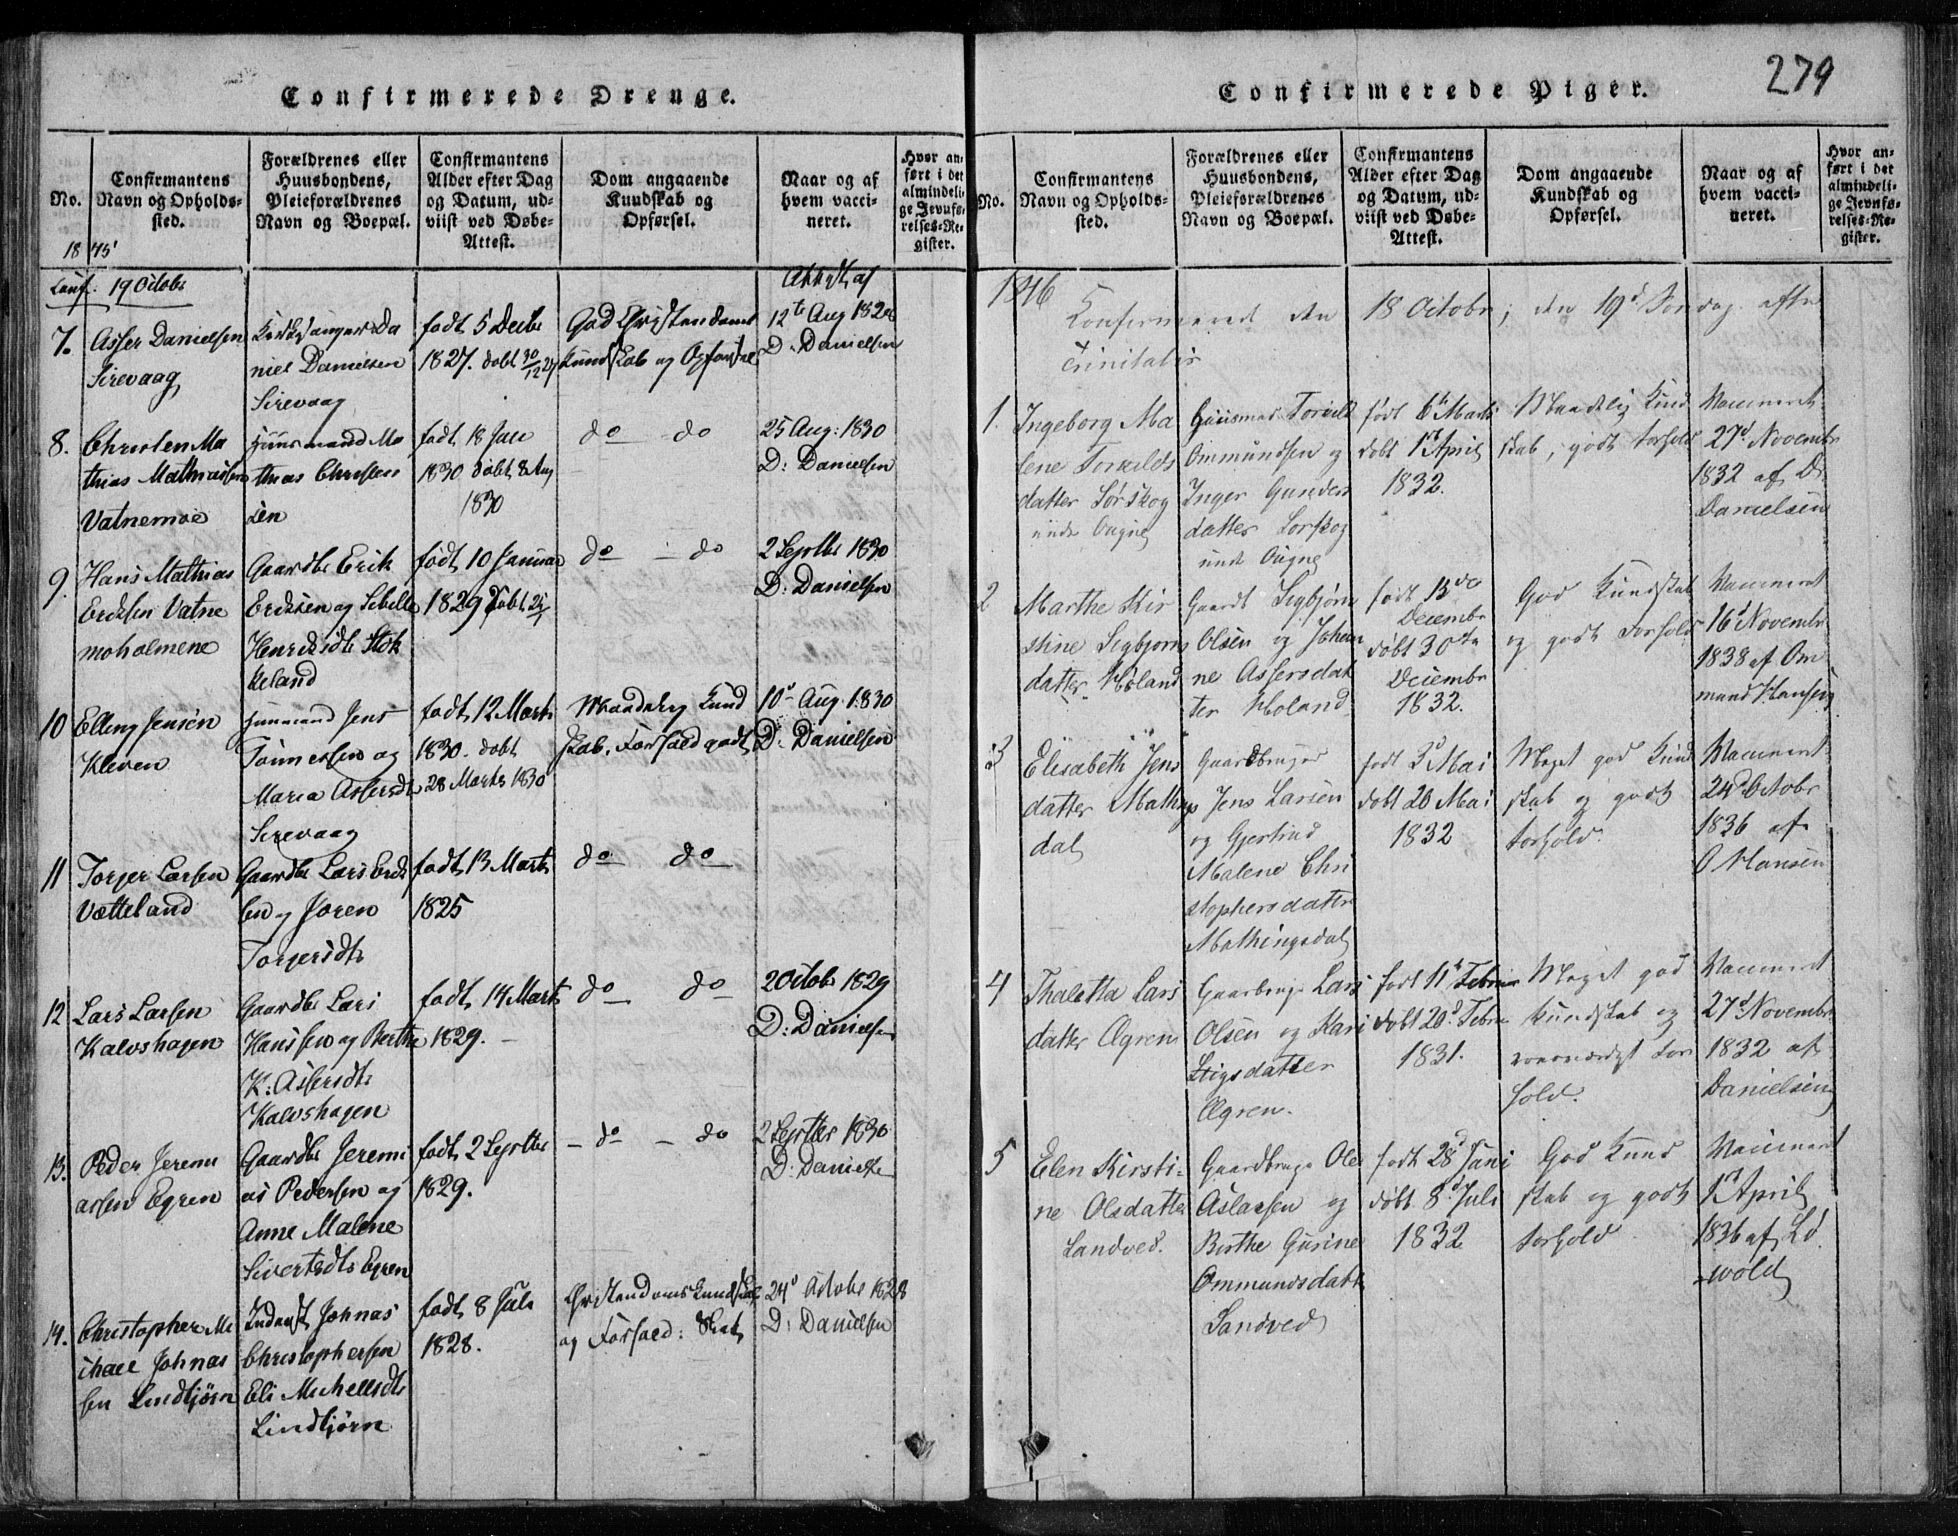 Confirmerede Drenge.
No.
Confirmantens
Navn og Opholds-
sted.
Forældrenes eller
Huusbondens,
Pleieforældrenes
Navn og Boepæl.
Confirmantens
Alder efter Dag
og Datum, ud-
viist ved Døbe-
Attest.
Dom angaaende
Kundskab og
Opførsel.
Naar og af
hvem vacci-
neret.
Hvor an-
ført i det
almindeli-
ge Jevnfø-
relses-Re-
gister.
1845
Conf. 19 Octobr
Attest af
7.
Asser Danielsen
Sirevaag
Kirkesanger Da
niel Danielsen
Sirevaag
født 5 Decbr
1827. døbt 30/12 27
God Christendoms
Kundskab og Opførsel
12te Aug 1828
D. Danielsen
8.
Christen Ma
thias Mathiassen
Vatnemoe
Huusmand Ma
thias Christen
sen
født 18 Juli
1830 døbt 8 Aug
1830
do - do
25 Aug: 1830
D: Danielsen
9.
Hans Mathias
Eriksen Vatne
moholmene
Gaardbr Erik
Eriksen og Sibelle
Henriksdtr Stok
keland
født 10 Januar
1829 døbt 25/1
do - do
2 Septbr 1830
D: Danielsen
10
Elling Jensen
Kleven
Huusmand Jens
Tønnessen og
Maria Assersdtr
Sirevaag
født 12 Marts
1830. døbt
28 Marts 1830
Maadelig Kund
skab, Forhold godt
10de Aug. 1830
D: Danielsen
11
Torger Larsen
Vætteland
Gaardbr Lars Erik
sen og Joren
Torgersdtr
født 13 Marts
1825
do do
12
Lars Larsen
Kalvshagen
Gaardbr Lars
Hanssen og Berthe
K: Assersdtr
Kalvshagen
født 14 Marts
1829.
do do
2 Octobr 1829
D: Danielsen
13.
Peder Jeremi
assen Egren
Gaardbr Jeremi
as Pedersen og
Anne Malene
Sivertsdtr Egren
født 2 Septbr
1829.
- do - do
2 Septbr 1830
D: Danielsen
14.
Christopher Mi
chael Johnas
sen Lindtjørn
Inderst Johnas
Christophersen
Eli Michelsdtr
Lindtjørn
født 8 Juli
1828.
Christendomskundskab
og Forhold: Slet
24de Octobr 1828
D: Danielsen
Confirmerede Piger.
279
No.
Confirmantens
Navn og Opholds-
sted.
Forældrenes eller
Huusbondens,
Pleieforældrenes
Navn og Boepæl.
Confirmantens
Alder efter Dag
og Datum, ud-
viist ved Døbe-
Attest.
Dom angaaende
Kundskab og
Opførsel.
Naar og af
hvem vacci-
neret.
Hvor an-
ført i det
almindeli-
ge Jevnfø-
relses-Re-
gister.
1846
Konfirmeret den 18 Octobr, den 19de Søndag efter
Trinitatis
1.
Ingeborg Ma
lene Torkilds
datter Sørskog
under Ougne
Huusmand Torkild
Ommundsen og
Inger Gunders
datter Sørskog
und Ougne
født 6te Marts
døbt 1ste April
1832.
Maadelig Kund
skab, godt forhold
Vaccineret
27de Novembr
1832 af D.
Danielsen
2
Marthe Kir
stine Sigbjørns
datter Holand
Gaardb Sigbjørn
Olsen og Johan
ne Assersdat
ter Holand
født 13de
Decembr
døbt 30te
Decembr
1832.
God Kundskab
og godt Forhold
Vaccineret
16de Novembr
1838 af Om
mund Hansen
3
Elisabeth Jens
datter Mathings
dal
Gaardbruger
Jens Larsen
og Gjertrud
Malene Chri
stophersdatter
Mathingsdal
født 3de Mai
døbt 20 Mai
1832
Meget god Kund
skab og godt
forhold.
Vaccineret
24de Octobr
1836 af
O Hansen
4
Thaletta Lars
datter Ægren
Gaardbruger Lars
Olsen og Kari
Stigsdatter
Ægren.
født 11te Februar
døbt 20de Febru
1831.
Meget god
Kundskab og
roesværdigt For
hold.
Vaccineret
27de Novembr
1832 af
Danielsen
5
Elen Kirsti-
ne Olsdatter
Sandved.
Gaardbruger Ole
Aslaksen og
Birthe Gurine
Ommundsdatt
Sandved
født 28de Juni
døbt 8de Juli
1832
God Kund
skab og godt
forhold
Vaccineret
1ste April
1836 af Ld.
wold